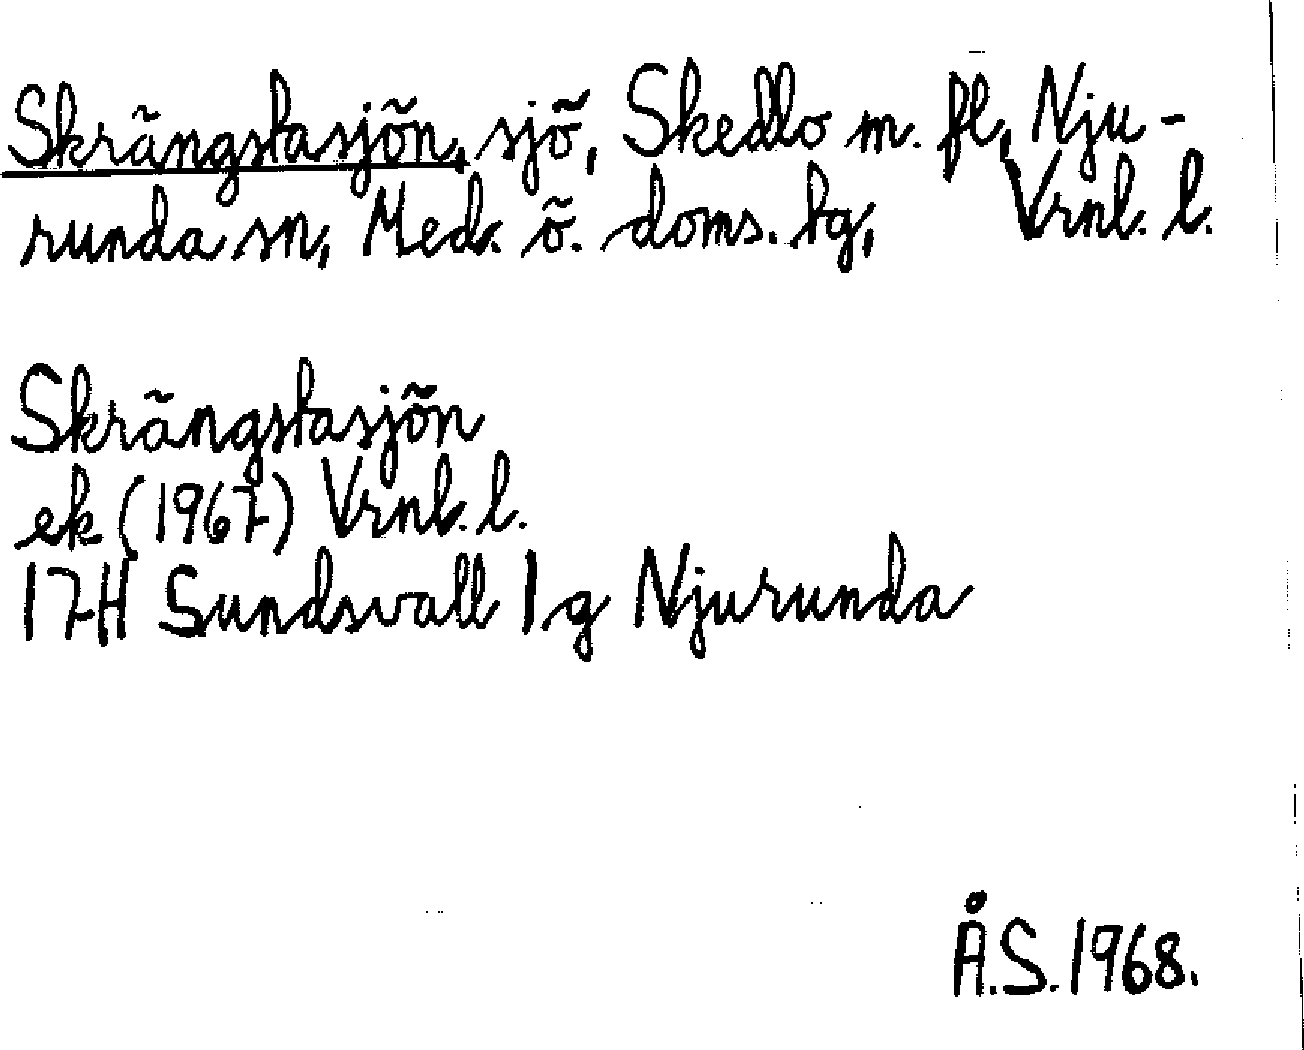 Skrängstasjön, sjö, Skedlo m. fl, Nju-
runda sn, Med. ö. doms. tg, Vrnl. l.
Skrängstasjön
ek (1967) Vrnl. l.
17H Sundsvall 1g Njurunda
Å.S. 1968.